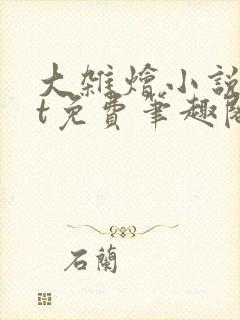 大雜燴小說
t免費筆趣閣
石蘭